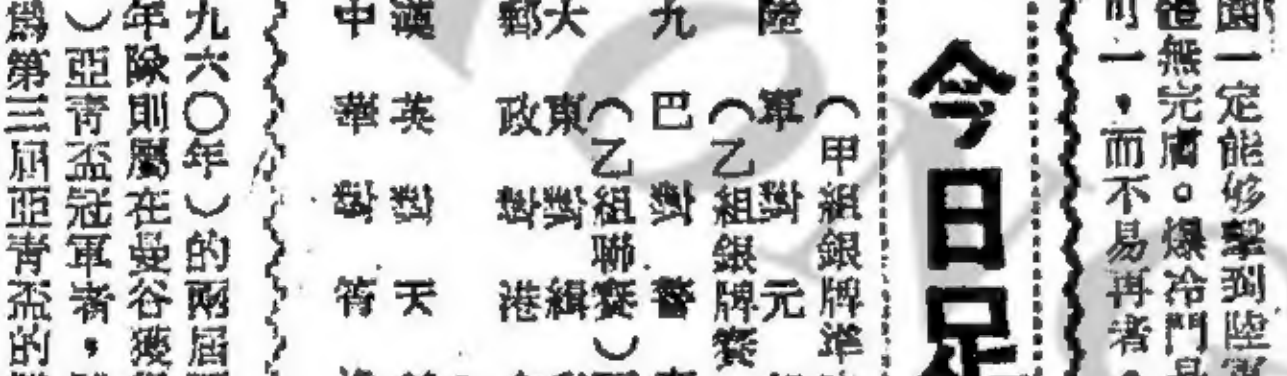 園一定能够擊到陸軍
體無完膚。爆冷門
可一，而不易再者
今日足
（甲組銀牌準
陸軍對元
（乙組銀牌賽
九巴對警
（乙組聯賽）
大東對緝
郵政對港
漢英對天
中華對菁
九六〇年）的兩屆
年除則屬在曼谷獲
）亞青盃冠軍者，
爲第三屆亞青盃的